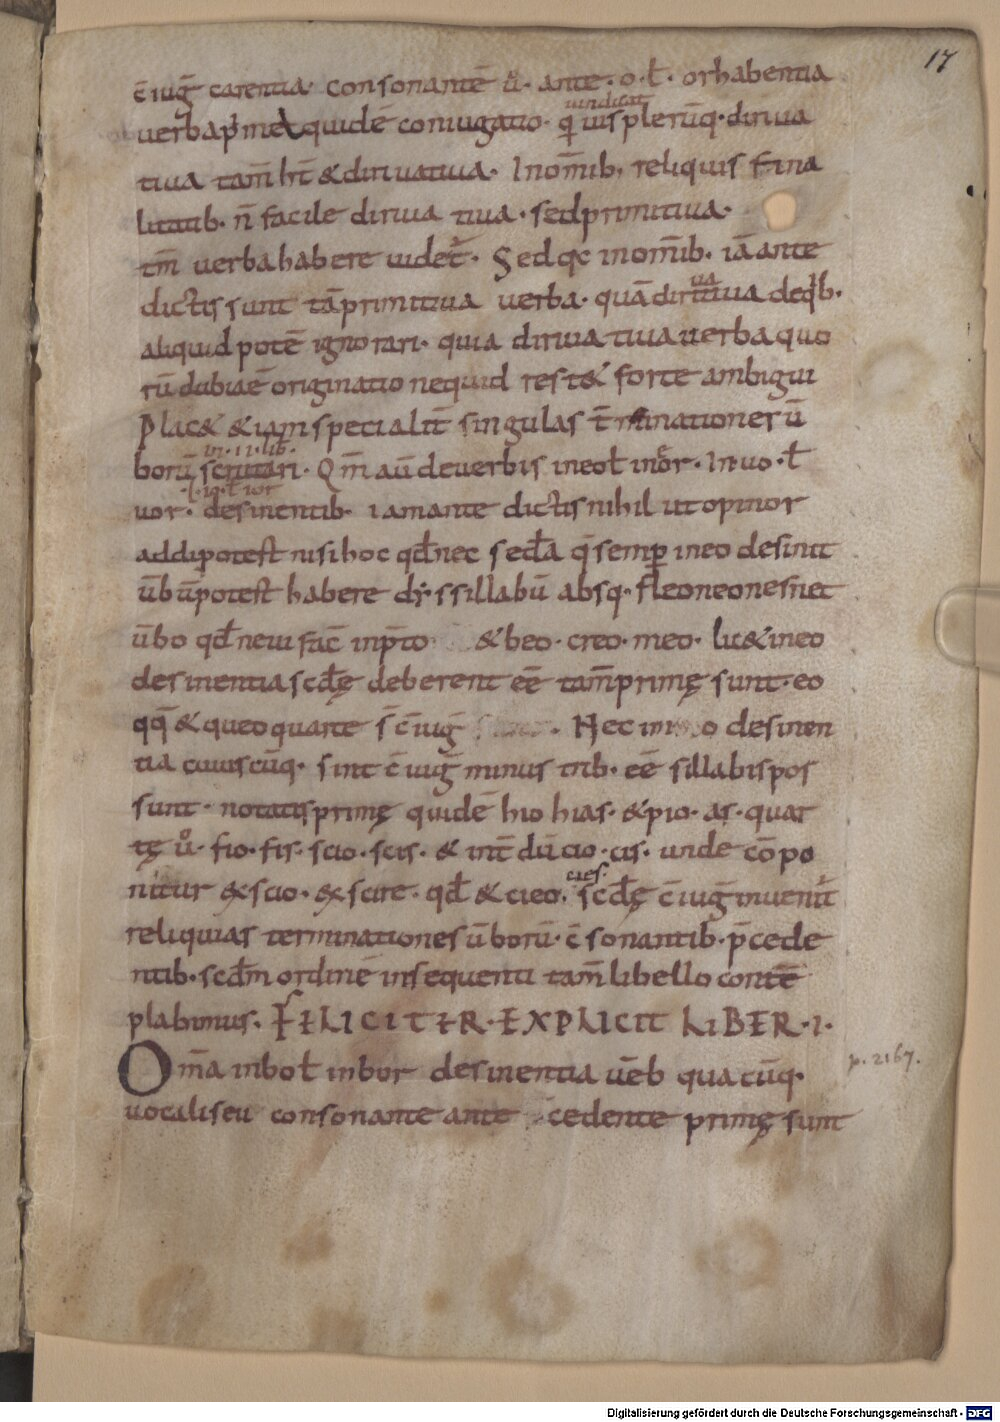 17
c̄ iug̃ carentia. consonante ũ. ante. o. ł. or habentia
uindicat
uerba p̃me quidē coniugatio. qͥ uis plerūq. diriua
tiua tam̃ hr̃t & diriuatiua. In om̃ib, reliquis fina
litatib. ñ facile diriua tiua. sed primitiua.
tm̃ uerba habere uidet̃. Sed q̨ in om̃ib. iā ante
ua
dictis sunt tā primitiua uerba. quā diriuiua de qͥb.
aliquid potē ignorari. quia diriua tiua uerba quo
rū dubiaē originatio nequid rest& forte ambigui
Plac& & iam speciali t̃ singulas t̃ minationes ū
in. ii. lib.
borū scrutari. Qm̃ aū de uerbis in eo ł in or. In uo. ł
.l. iq. ł ior
uor. desinentib. iam ante dictis nihil ut opinor
addi potest nisi hoc qđ nec sedā q̄ semp in eo desinit
ūbū potest habere dy ssillabū absq. fleo neo nes net
ūbo qđ neui fac̄ in p̄to & beo. creo. meo. lic& in eo
desinentia scdę deberent eē tam̃ primę sunt. eo
qq̄ & queo quarte s̄ c̄ iug̃ . Nec in o desinen
tia cuiuscūq. sint c̄ iug̃ minus trib. eē sillabis pos
sunt. notatis primę quidē hio hias. & pio. as. quar
tę ů. fio. fis. scio. scis. & int̄ dū cio. cis. unde cōpo
cies.
nitur & scio. & scire. qđ & cieo. scdę c̄ iug̃ inuenit̃
reliquias terminationes ū borū. c̄ sonantib. p̄cede
ntib. scdm̃ ordinē in sequenti tam̃ libello contē
plabimus. FELICITER. EXPLICIT LIBER. I.
Om̃a in bo ł in bor desinentia uēb qua cūq. p. 2167.
uocali seu consonante ante cedente primę sunt
Digitalisierung gefördert durch die Deutsche Forschungsgemeinschaft - DFG